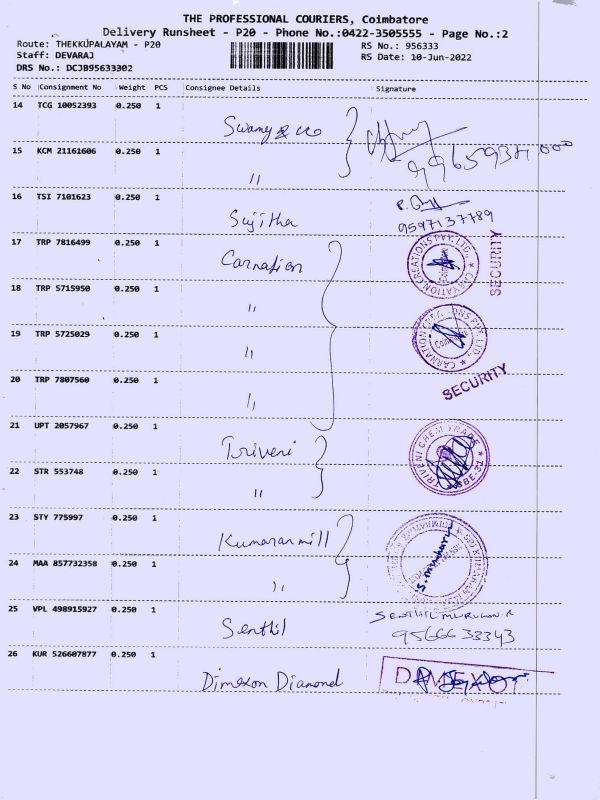 THE PROFESSIONAL COURIERS, Coimbatore
Delivery Runsheet - P20 - Phone No.:0422-3505555 - Page No.:2
Route: THEKKUPALAYAM - P20
RS No.: 956333
Staff: DEVARAJ
RS Date: 10-Jun-2022
DRS No.: DCJB95633302
S No Consignment No Weight PCS Consignee Details Signature
14 TCG 10052393 0.250 1 Swamy & co
15 KCM 21161606 0.250 1 "
16 TSI 7101623 0.250 1 Sujitha
9597137789
17 TRP 7816499 0.250 1 Carnation
SECURITY
18 TRP 5715950 0.250 1 "
19 TRP 5725029 0.250 1 "
20 TRP 7807560 0.250 1 "
SECURITY
21 UPT 2057967 0.250 1 Triveni
TRIVENI CHEM TRADE
22 STR 553748 0.250 1 "
23 STY 775997 0.250 1 Kumaran mill
24 MAA 857732358 0.250 1 "
25 VPL 498915927 0.250 1 Senthil
SENTHIL MURUGAN R
9566633343
26 KUR 526607877 0.250 1 Dimexon Diamond